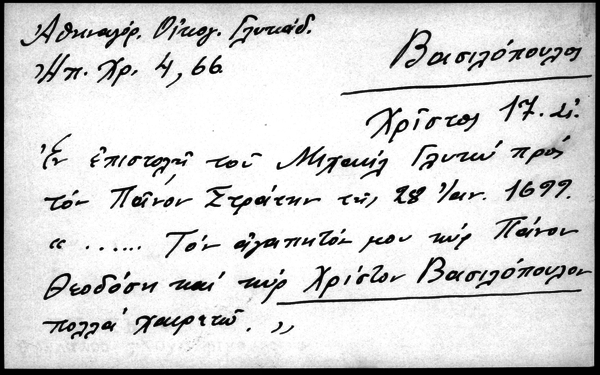 Ἀθηναγόρ. Οἰκογ. Γλυκάδ.
Ἠπ. Χρ. 4, 66.
Βασιλόπουλος
Χρῖστος 17. αἰ.
Ἐν ἐπιστολῇ τοῦ Μιχαὴλ Γλυκῦ πρὸς
τὸν Πᾶνον Στράτην τῆς 28 Ἰαν. 1699.
“ ...... Τὸν ἀγαπητόν μου κὺρ Πάνον
Θεοδόση καὶ κὺρ Χρίστον Βασιλόπουλον
πολλὰ χαιρετῶ. ”